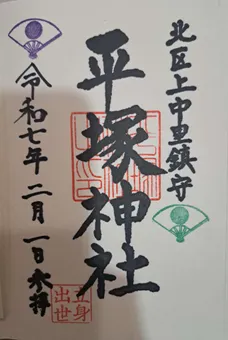 北区上中里鎮守
平塚神社
令和七年 二月一日 水拝
立身
出世